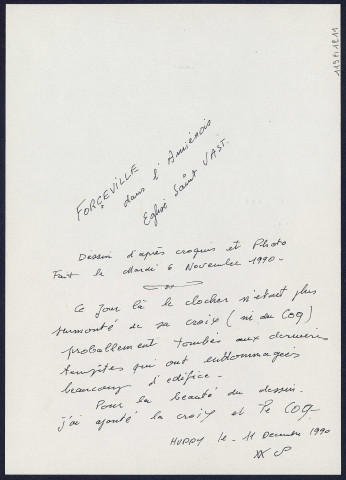 FORCEVILLE
dans l'Amiénois
Eglise Saint VAST.
Dessin d'après croquis et Photo
Fait le Mardi 6 Novembre 1990 -
Ce jour là le clocher n'était plus
surmonté de sa croix (ni du COQ)
probablement tombés aux dernières
tempêtes qui ont endommagées
beaucoup d'édifice -
Pour la beauté du dessin.
j'ai ajouté la croix et le COQ -
HUPPY le - 11 Décembre 1990